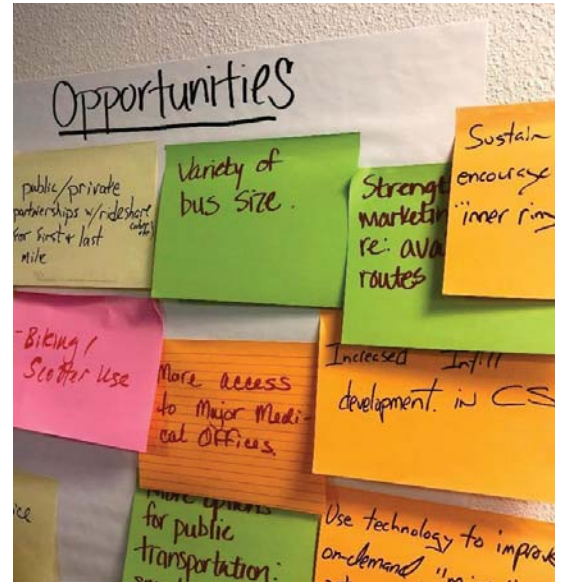 Opportunities
public/private
partnerships w/rideshare
for first & last
mile
Variety of
bus size.
Strengt
marketin
re: ava
routes
Sustain
encourage
"inner ring
-Biking/
Scotter Use
More access
to Major Medi-
cal Offices.
Increased Infill
development. in CS
ice
More options
for public
transportation:
Use technology to improve
on-demand